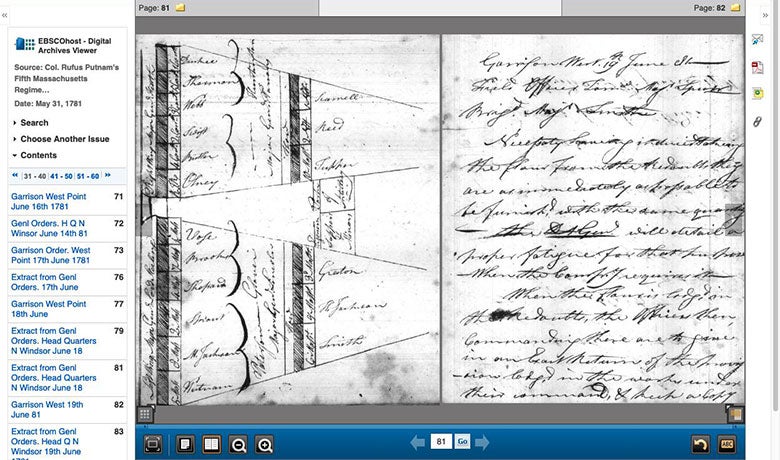 Page: 81
Page: 82
EBSCOhost - Digital
Archives Viewer
Source: Col. Rufus Putnam's
Fifth Massachusetts
Regime...
Date: May 31, 1781
Search
Choose Another Issue
Contents
31 - 40 41 - 50 51 - 60
Garrison West Point 71
June 16th 1781
Genl Orders. H Q N 72
Winsor June 14th 81
Garrison Order. West 73
Point 17th June 1781
Extract from Genl 76
Orders. 17th June
Garrison West Point 77
18th June
Extract from Genl 79
Orders. Head Quarters
N Windsor June 18
Extract from Genl 81
Orders. Head Quarters
N Windsor June 18
Garrison West 19th 82
June 81
Extract from Genl 83
Orders. Head Q N
Windsor 19th June
Durkee
Sherman
Webb
Swift
Butler
Olney
Scamell
Reed
Tupper
Vose
Brooks
Shepard
Greaton
H. Jackson
Smith
M. Jackson
Putnam
Garrison West. 19th June 81
Field Officer Tom
Brigd. Majr. Smith
Necessity having induced taking
the flour from the Redoubts they
are as immediately as possible to
be furnishd with the same quantity
will detail a
proper fatigue for that purpose
When the Comsy requires it
When the flour is lodgd on
the Redoubts, the Officers then
Commanding there are to give
in an Exact Return of the
lodgd in the works under
their command, &
81
Go
ABC